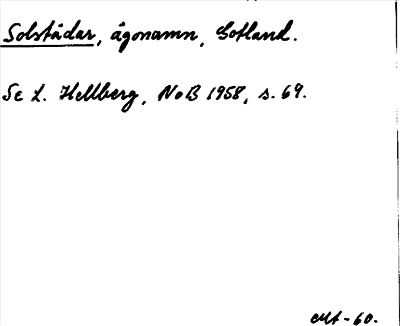 Solstädar, ägonamn, Gotland.
Se L. Hellberg, NoB 1958, s. 69.
Mt-60.